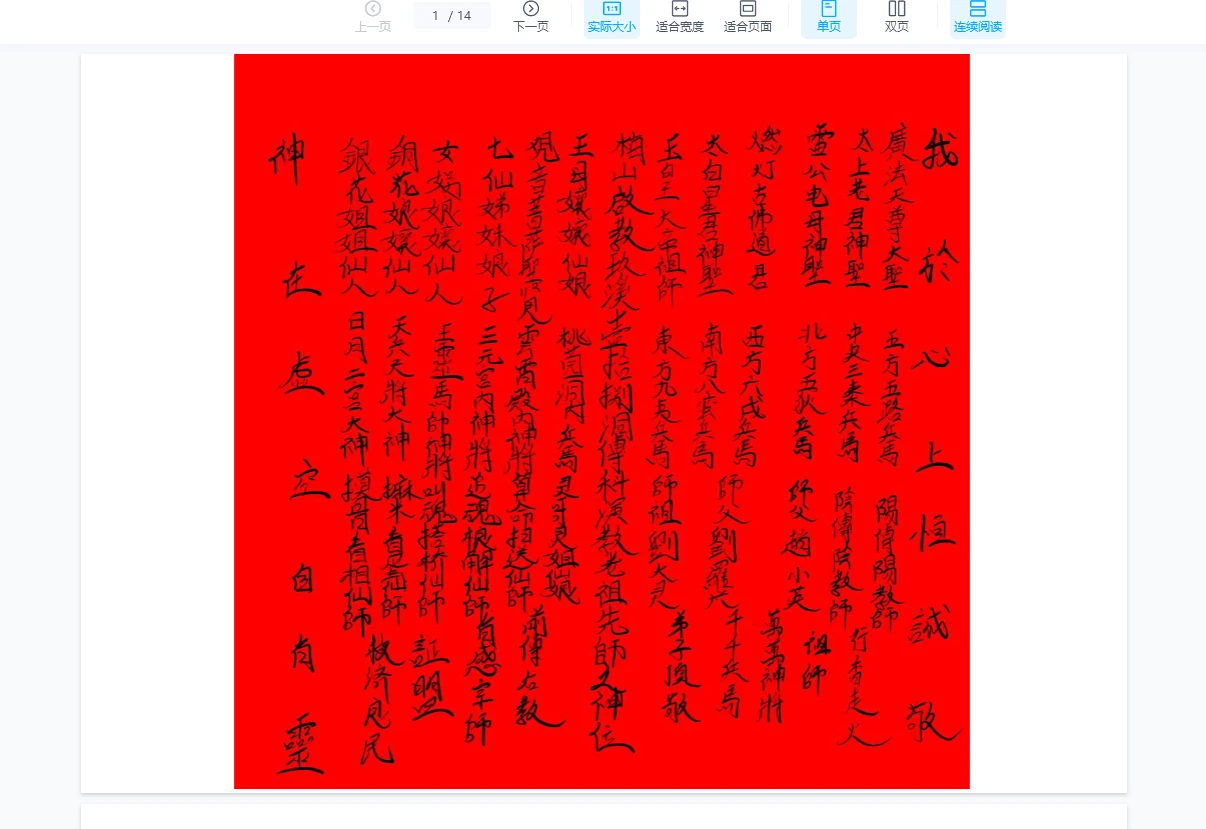 上一页
1 / 14
下一页
实际大小
适合宽度
适合页面
单页
双页
连续阅读
我於心上恒誠敬
廣法天尊大聖 五方五路兵馬 陽傳陽教師
太上老君神聖 中央三秦兵馬 陰傳陰教師 行香走火
雪公电母神聖 北方五狄兵馬 師父趙小英 祖師
燃灯古佛道君 西方六戎兵馬 萬萬神將
太白星君神聖 南方八蛮兵馬 師父劉羅 千千兵馬
玉皇大帝祖師 東方九夷兵馬 師祖劉大灵 弟子虔敬
柏山啟教 溪 洞傳科演教老祖先師之神位
王母孃孃仙娘 桃園洞内兵馬灵哥灵姐仙娘
观音菩萨聖賢 雲霄殿内神將算命 送仙師 前傳右教
七仙姊妹娘子 三元宫内神將追魂 解仙師 宗師
女媧娘孃仙人 王靈馬帥神將叫魂搭桥仙師 証盟
銅花娘孃仙人 天兵天將大神 仙師 救濟 民
銀花姐姐仙人 日月二宫大神摸骨看相仙師
神在虛空自有靈